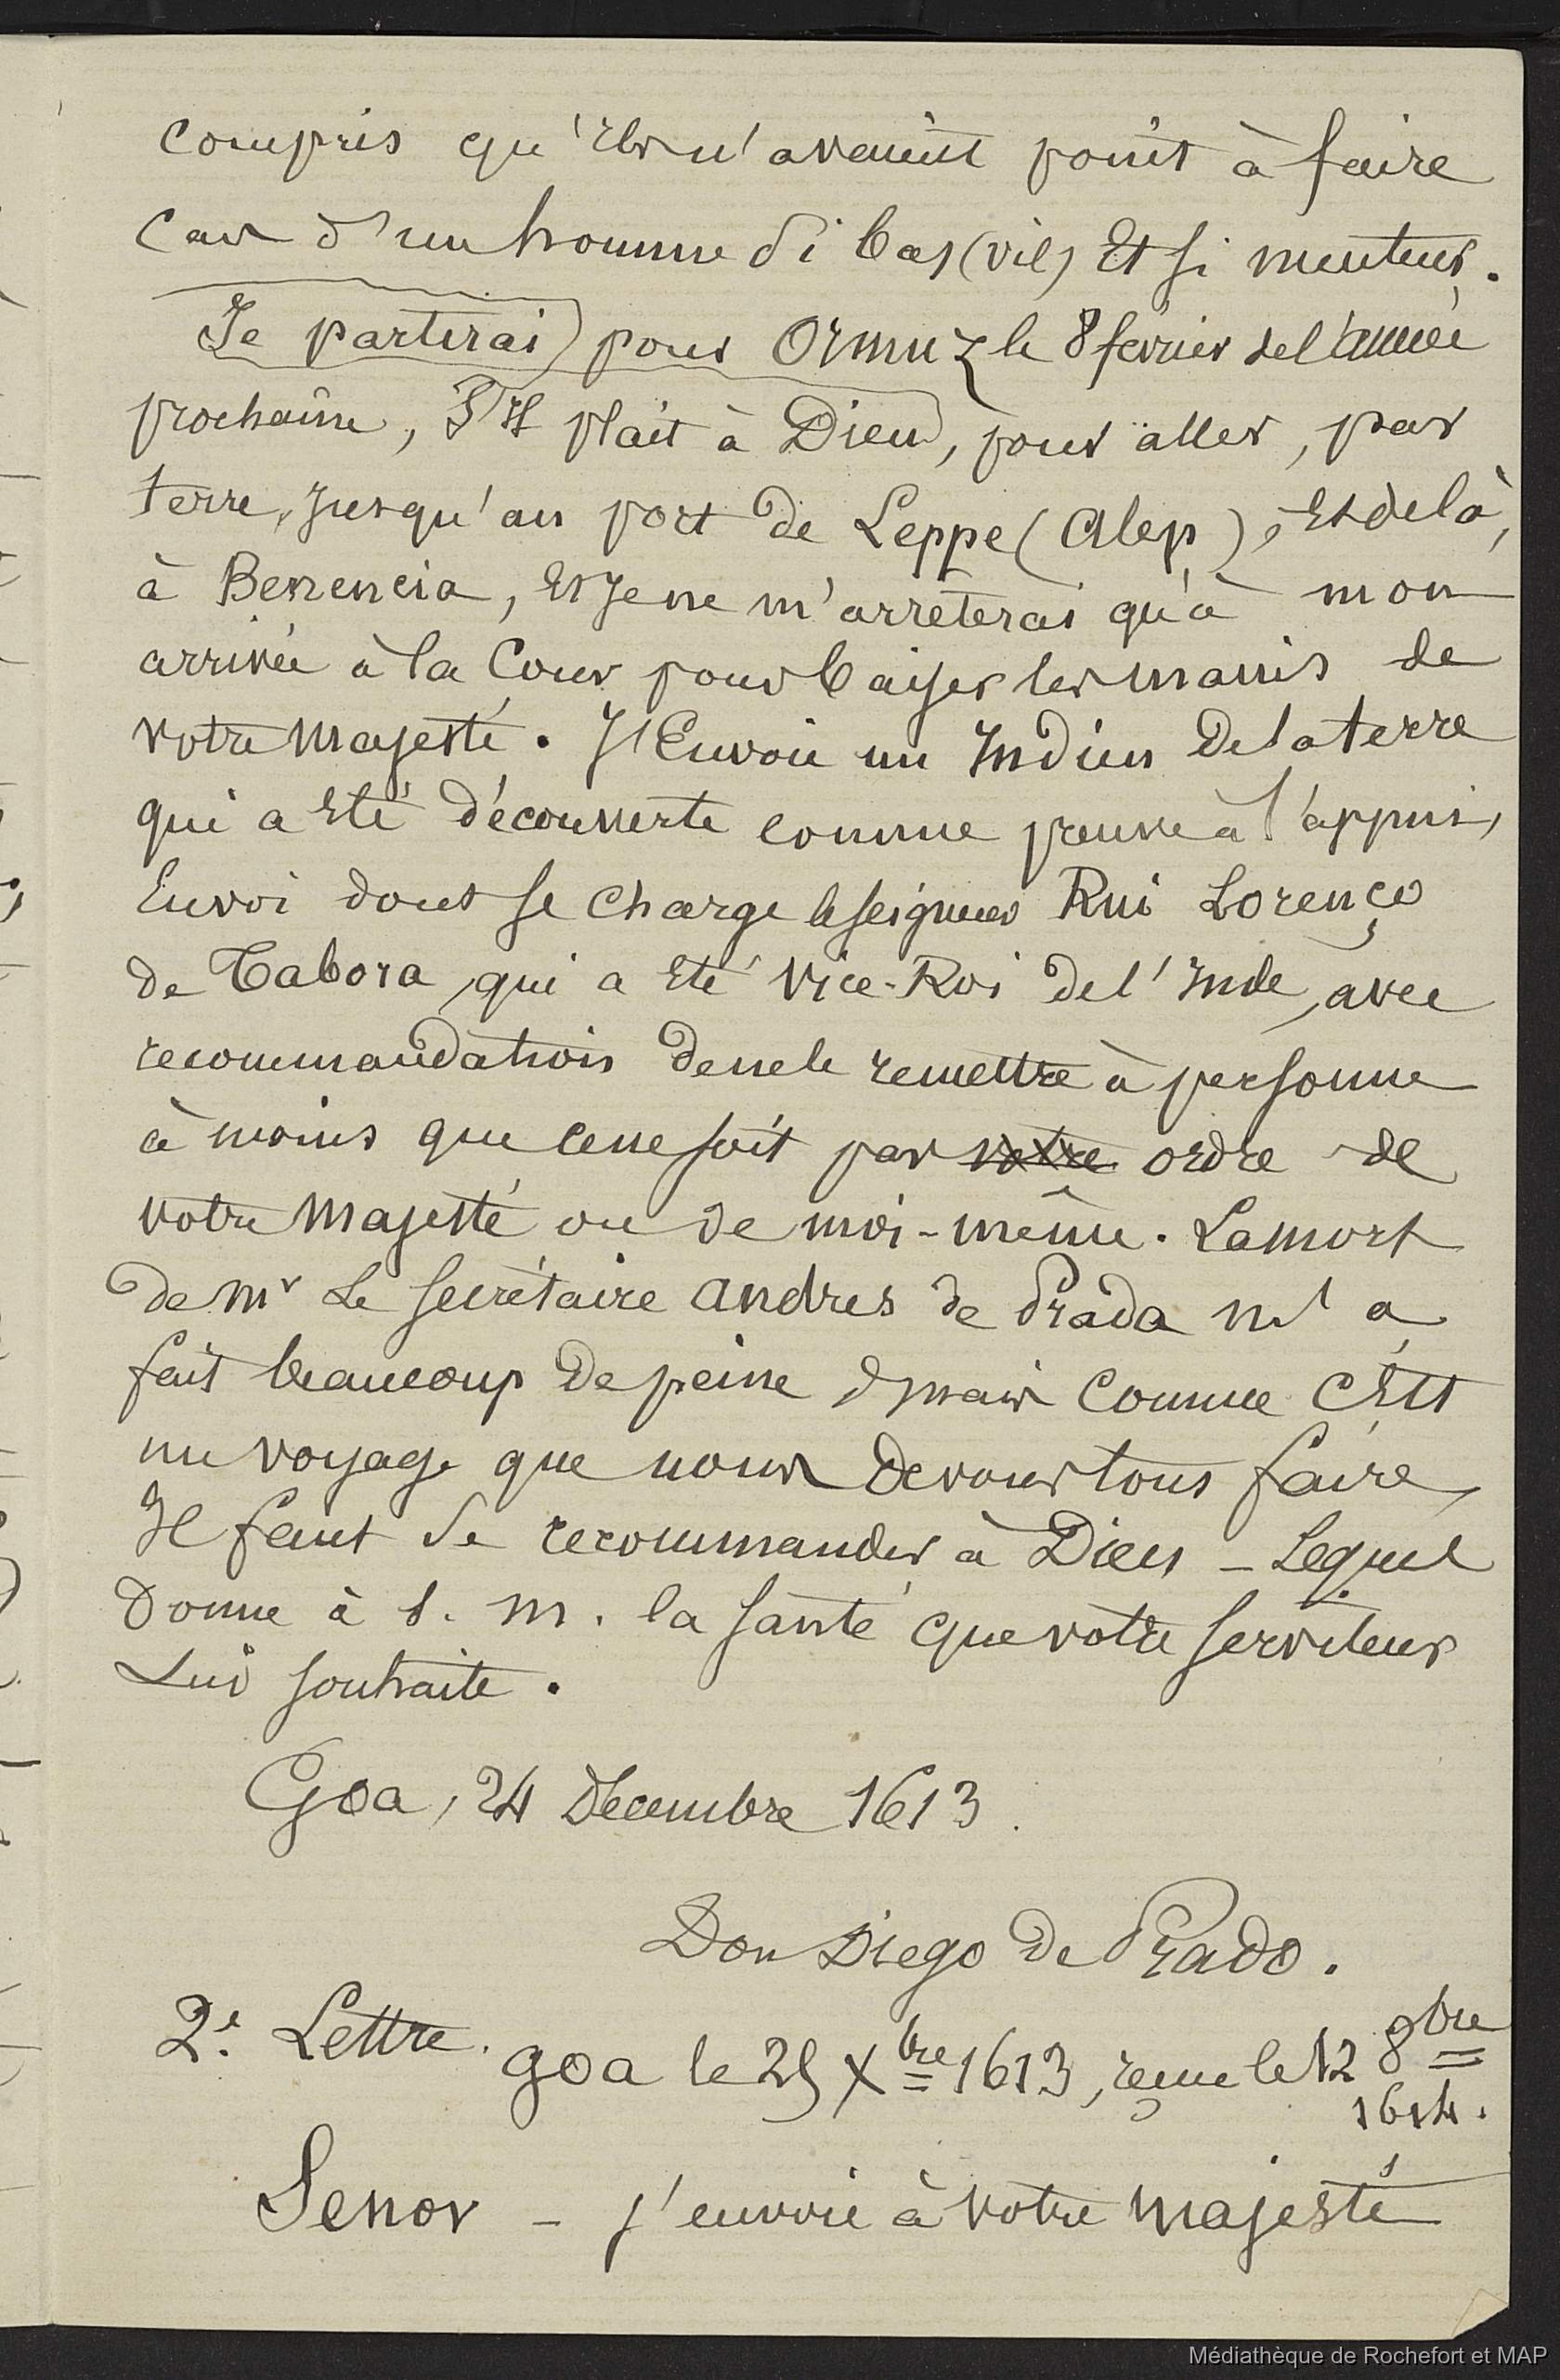 compris qu'ils n'avaient point à faire
cas d'un homme si bas (vil) Et si menteur.
Je partirai pour Ormuz le 8 février de l'année
prochaine, S'Il plait à Dieu, pour aller, par
terre, jusqu'au port de Leppe (Alep), Et de là,
à Benencia, Et Je ne m'arrêterai qu'à mon
arrivée à la Cour pour baiser les mains de
votre Majesté. J'Envoie un Indien De la terre
qui a Eté découverte comme preuve à l'appui,
Envoi dont se charge le seigneur Rui Lorenço
de Tabora, qui a Eté Vice-Roi de l'Inde, avec
recommandation de ne le remettre à personne
à moins que ce ne soit par votre ordre de
votre Majesté ou de moi-même. La mort
de Mr Le secrétaire Andres de Prada m'a
fait beaucoup de peine mais comme c'Est
un voyage que nous devons tous faire,
Il faut se recommander à Dieu - Lequel
Donne à S. M. la santé que votre serviteur
Lui souhaite.
Goa, 24 Décembre 1613.
Don Diego de Prado.
2e. Lettre. Goa le 25 Xbre 1613, reçue le 12 8bre
1614.
Senor - j'envoie à votre Majesté
Médiathèque de Rochefort et MAP